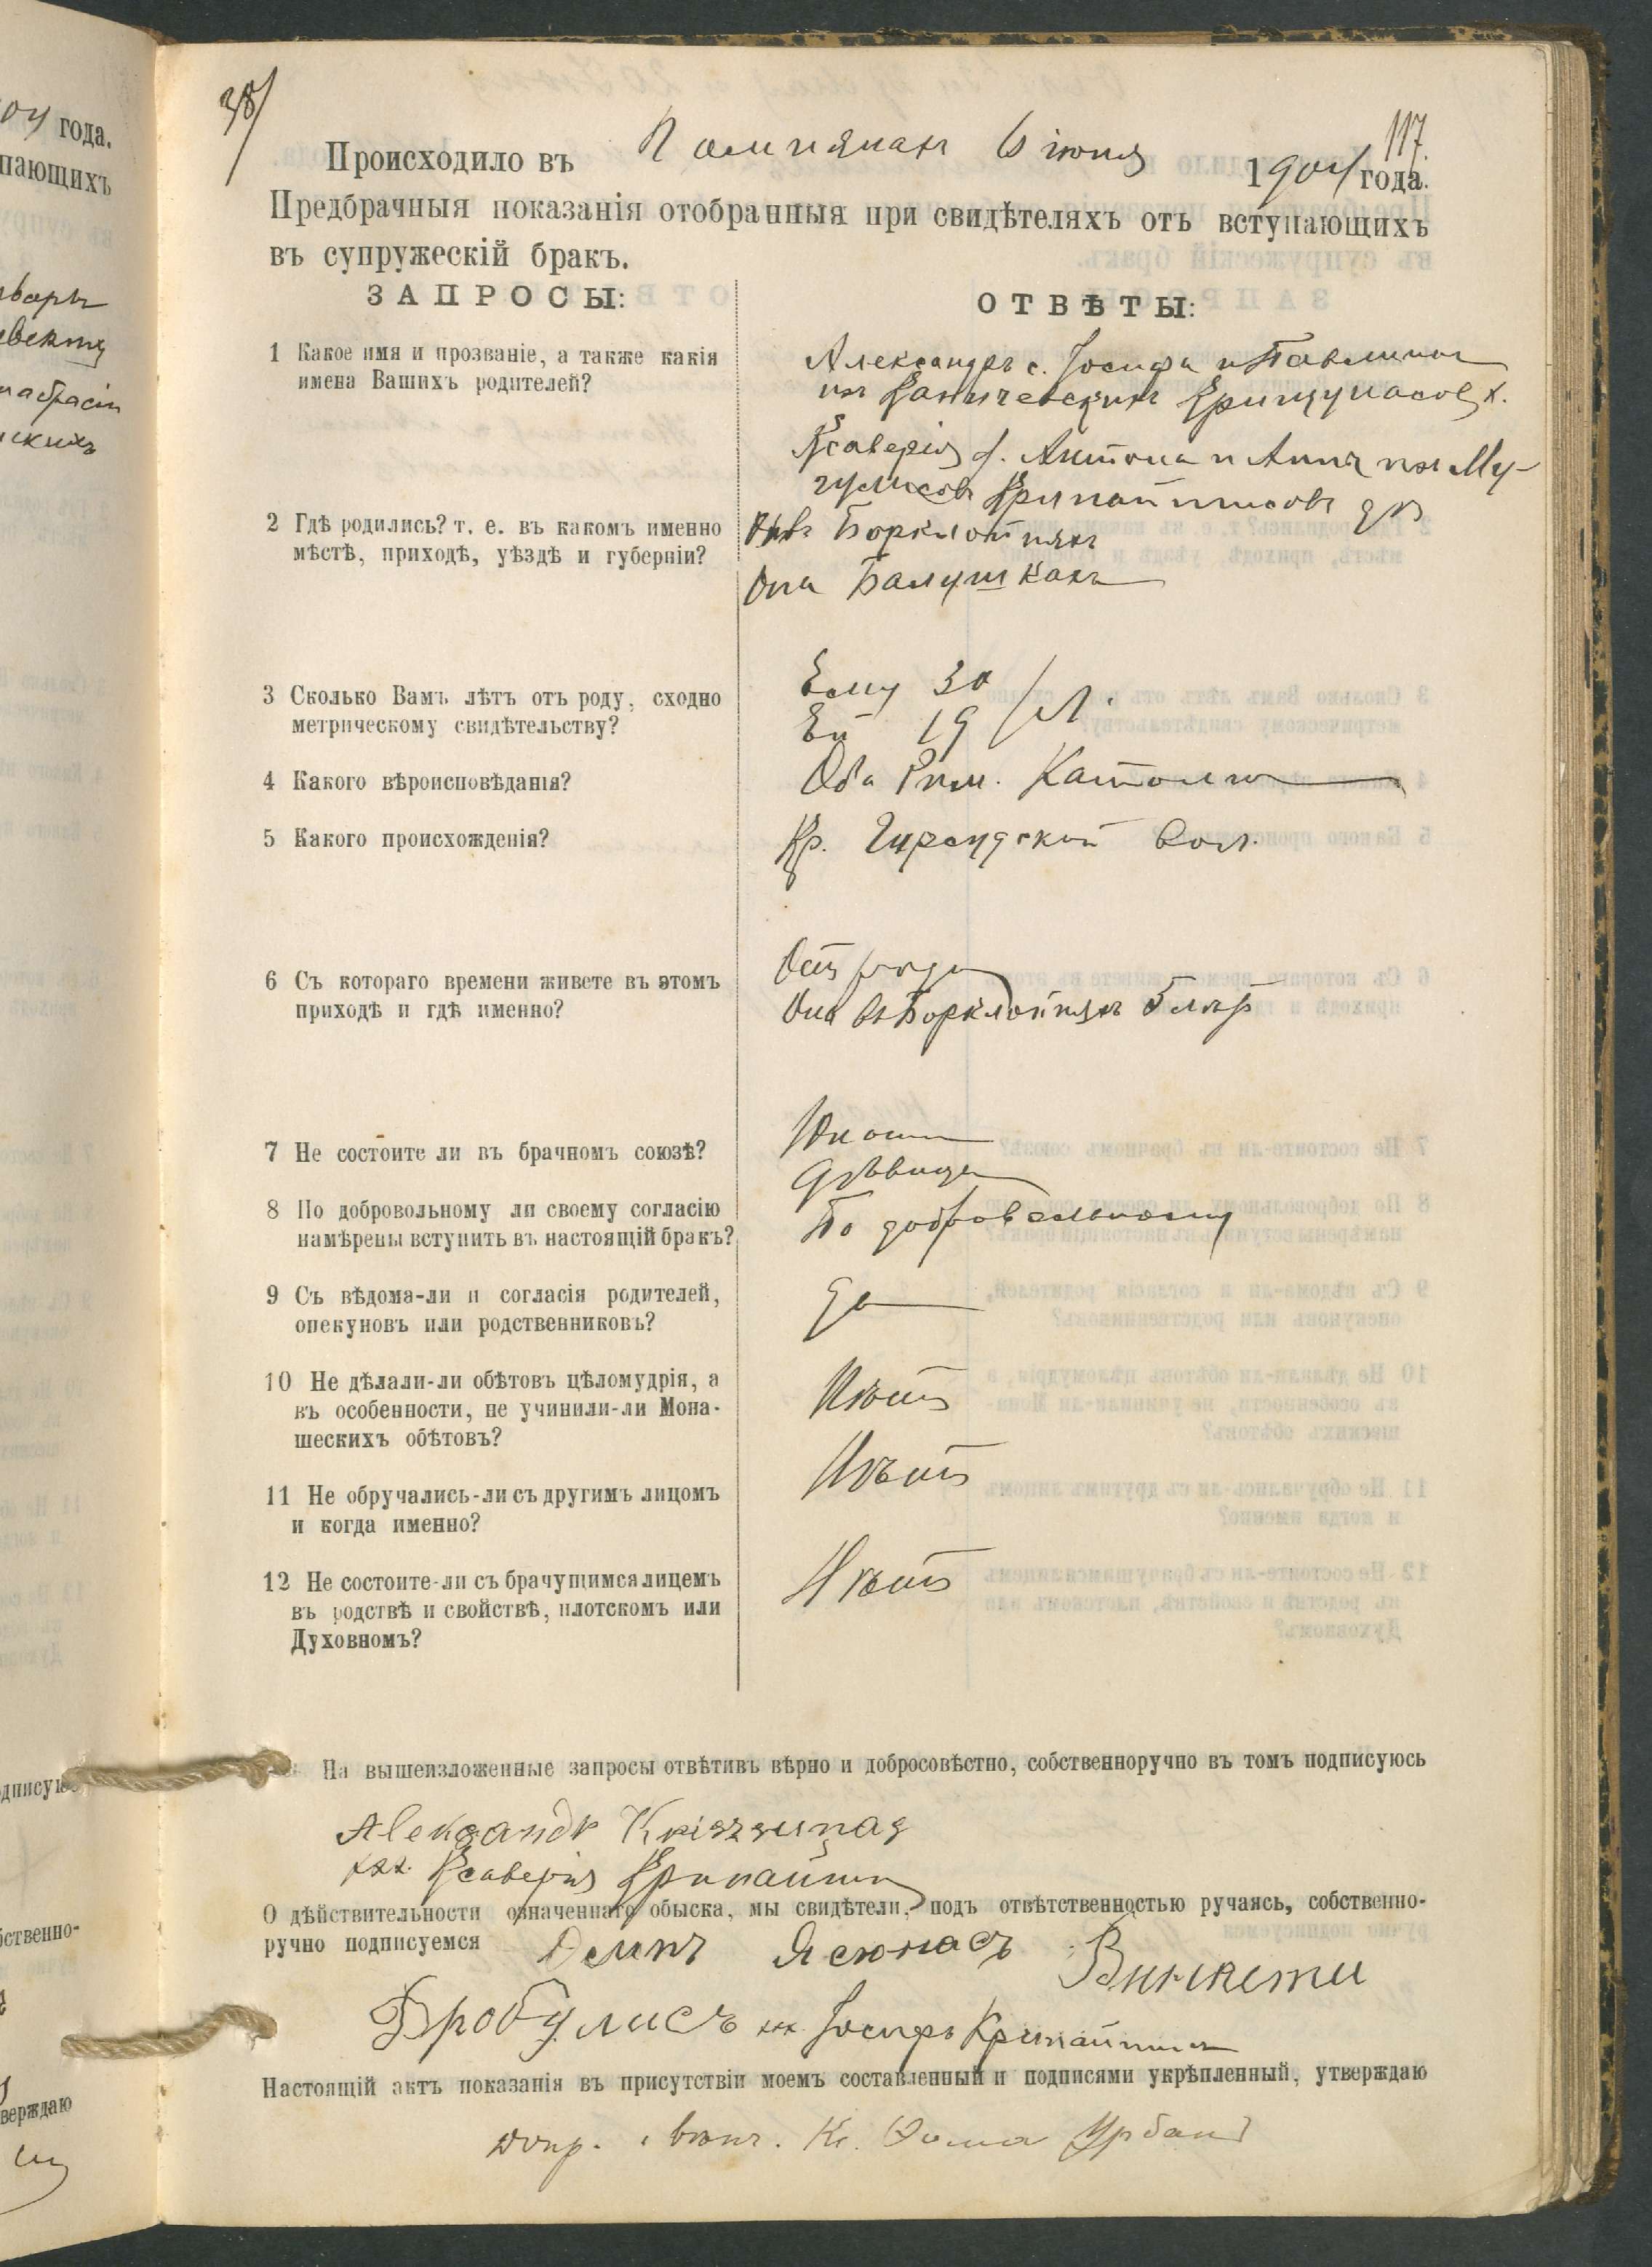 38/
117.
Происходило въ 6 іюня 1904 года.
Предбрачныя показанія отобранныя при свидѣтеляхъ отъ вступающихъ
въ супружескій бракъ.
ЗАПРОСЫ:
ОТВѢТЫ:
1 Какое имя и прозваніе, а также какія
имена Вашихъ родителей?
Александръ с. Іосифа и Павлины
изъ х.
Ксаверія д. Антона и Анны изъ
2 Гдѣ родились? т. е. въ какомъ именно
мѣстѣ, приходѣ, уѣздѣ и губерніи?
Онъ Борклойняхъ
Она Балушкахъ
3 Сколько Вамъ лѣтъ отъ роду, сходно
метрическому свидѣтельству?
Ему 30
Ей 19 / л.
4 Какого вѣроисповѣданія?
Оба Рим. Катол
5 Какого происхожденія?
Кр. вол.
6 Съ котораго времени живете въ этомъ
приходѣ и гдѣ именно?
Отъ рода
Она въ Борклойняхъ 5 лѣтъ
7 Не состоите ли въ брачномъ союзѣ?
Юноша
Дѣвица
8 По добровольному ли своему согласію
намѣрены вступить въ настоящій бракъ?
По добровольному
9 Съ вѣдома-ли и согласія родителей,
опекуновъ или родственниковъ?
Да
10 Не дѣлали-ли обѣтовъ цѣломудрія, а
въ особенности, не учинили-ли Мона-
шескихъ обѣтовъ?
Нѣтъ
11 Не обручались-ли съ другимъ лицомъ
и когда именно?
Нѣтъ
12 Не состоите-ли съ брачущимся лицемъ
въ родствѣ и свойствѣ, плотскомъ или
Духовномъ?
Нѣтъ
На вышеизложенные запросы отвѣтивъ вѣрно и добросовѣстно, собственноручно въ томъ подписуюсь
Aleksandr Kriszsunas
xxx Ксаверія
О дѣйствительности означеннаго обыска, мы свидѣтели, подъ отвѣтственностью ручаясь, собственно-
ручно подписуемся Ясюнасъ Винкети
Бробулисъ xxx Іосифъ
Настоящій актъ показанія въ присутствіи моемъ составленный и подписями укрѣпленный, утверждаю
Кс. Ѳома Урбан